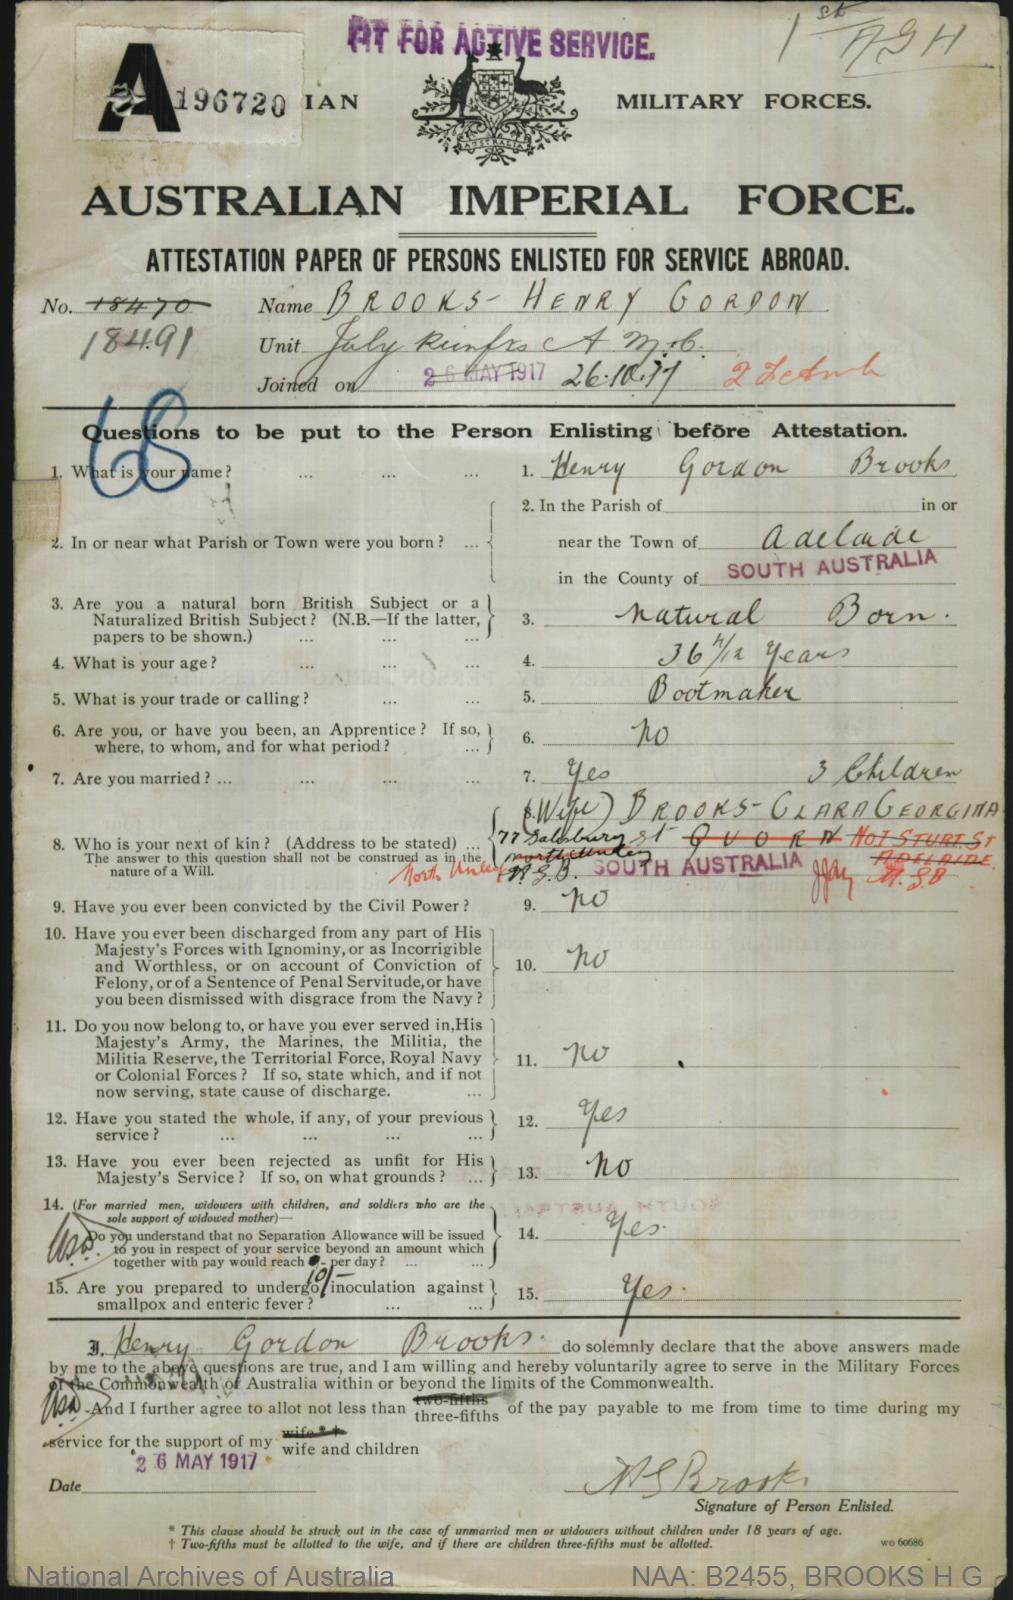 FIT FOR ACTIVE SERVICE.
1st AGH
A 196720 IAN MILITARY FORCES.
AUSTRALIA
AUSTRALIAN IMPERIAL FORCE.
ATTESTATION PAPER OF PERSONS ENLISTED FOR SERVICE ABROAD.
No. 18470 Name BROOKS - HENRY GORDON
18491 Unit July Reinfrs A M.C.
Joined on 26 MAY 1917 26.10.17
68
Questions to be put to the Person Enlisting before Attestation.
1. What is your name? ... ... ... 1. Henry Gordon Brooks
2. In or near what Parish or Town were you born? ... 2. In the Parish of in or
near the Town of Adelaide
in the County of SOUTH AUSTRALIA
3. Are you a natural born British Subject or a
Naturalized British Subject? (N.B.—If the latter,
papers to be shown.) ... ... 3. Natural Born.
4. What is your age? ... ... ... 4. 36 4/12 Years
5. What is your trade or calling? ... ... 5. Bootmaker
6. Are you, or have you been, an Apprentice? If so,
where, to whom, and for what period? ... 6. No
7. Are you married? ... ... ... ... 7. Yes 3 Children
8. Who is your next of kin? (Address to be stated) ... 8. (Wife) BROOKS - CLARA GEORGINA
The answer to this question shall not be construed as in the
nature of a Will.
77 Salisbury St QUORN No 1 STURT. ST
North Unley ADELAIDE
North Unley SOUTH AUSTRALIA
9. Have you ever been convicted by the Civil Power? 9. No
10. Have you ever been discharged from any part of His
Majesty's Forces with Ignominy, or as Incorrigible
and Worthless, or on account of Conviction of
Felony, or of a Sentence of Penal Servitude, or have
you been dismissed with disgrace from the Navy? 10. No
11. Do you now belong to, or have you ever served in, His
Majesty's Army, the Marines, the Militia, the
Militia Reserve, the Territorial Force, Royal Navy
or Colonial Forces? If so, state which, and if not
now serving, state cause of discharge. ... 11. No
12. Have you stated the whole, if any, of your previous
service? ... ... ... ... 12. Yes
13. Have you ever been rejected as unfit for His
Majesty's Service? If so, on what grounds? ... 13. No
14. (For married men, widowers with children, and soldiers who are the
sole support of widowed mother)—
Do you understand that no Separation Allowance will be issued
to you in respect of your service beyond an amount which
together with pay would reach 10/- per day? ... ... 14. Yes.
15. Are you prepared to undergo inoculation against
smallpox and enteric fever? ... ... 15. Yes.
I, Henry Gordon Brooks. do solemnly declare that the above answers made
by me to the above questions are true, and I am willing and hereby voluntarily agree to serve in the Military Forces
of the Commonwealth of Australia within or beyond the limits of the Commonwealth.
And I further agree to allot not less than two-fifths three-fifths of the pay payable to me from time to time during my
service for the support of my wife * † wife and children
26 MAY 1917
Date
H G Brooks
Signature of Person Enlisted.
* This clause should be struck out in the case of unmarried men or widowers without children under 18 years of age.
† Two-fifths must be allotted to the wife, and if there are children three-fifths must be allotted.
WO 60686
National Archives of Australia NAA: B2455, BROOKS H G